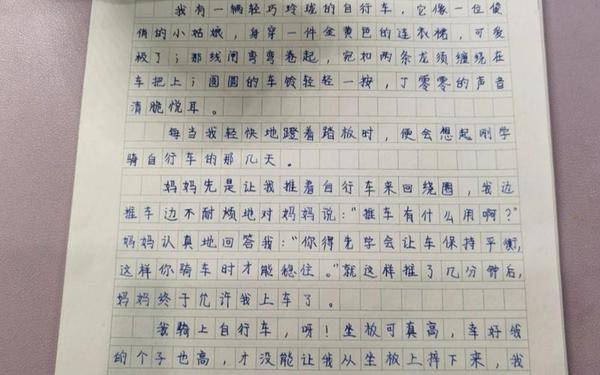 我有一辆轻巧玲珑的自行车，它像一位俊
俏的小姑娘，身穿一件金黄色的连衣裙，可爱
极了；那线闸弯弯卷起，宛如两条龙须缠绕在
车把上；圆圆的车铃轻轻一按，丁零零的声音
清脆悦耳。
每当我轻快地蹬着踏板时，便会想起刚学
骑自行车的那几天。
妈妈先是让我推着自行车来回绕圈，我边
推车边不耐烦地对妈妈说：“推车有什么用啊？”
妈妈认真地回答我：“你得先学会让车保持平衡，
这样你骑车时才能稳住。”就这样推了几分钟后，
妈妈终于允许我上车了。
我骑上自行车，呀！坐板可真高，幸好我
的个子也高，才没能让我从坐板上摔下来，我